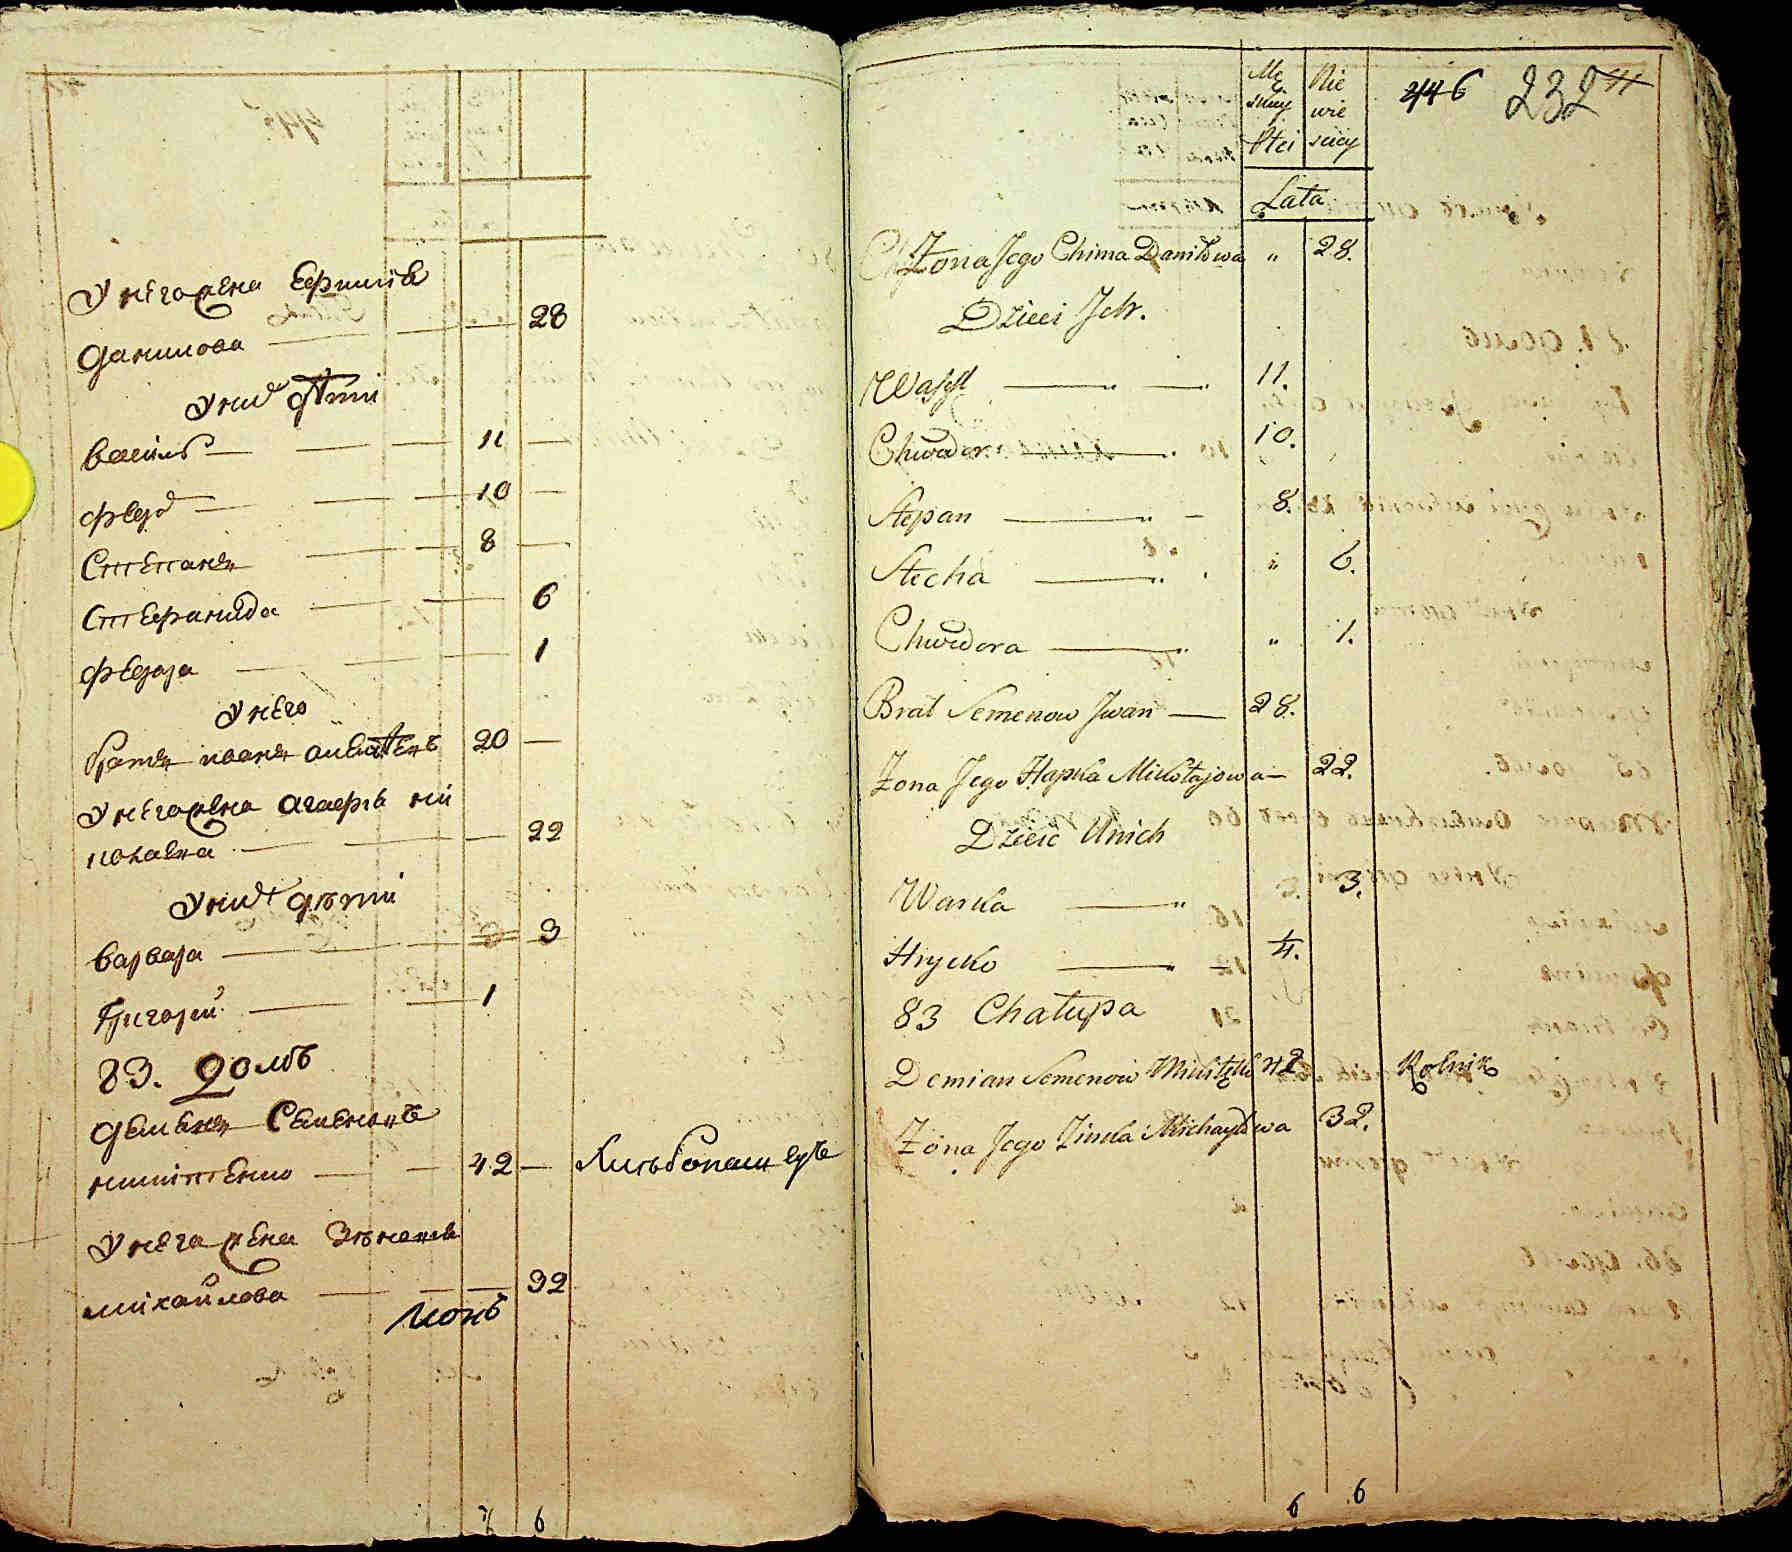 У него жена Ефимія
Данилова — — — 28
У них дѣти
Василь — — — 11 —
Федор — — — 10 —
Степанъ — — 8 —
Стефанида — — 6
Федора — — — 1
У него
братъ иванъ 20 —
У него жена Агафія ни
колаева — — — 22
У них дѣти
Варвара — — 3
Григорій — — 1
83. Домъ
Демьянъ Семеновъ
42 — Хлѣбопашецъ
У него жена Зѣновія
михайлова — — — 32
6
Mę
skiey
Płci
Nie
wie
sciey
446 232
Lata
Żona Jego Chima Daniłowa " 28.
Dzieci Ich.
Wasyl — — 11.
Chwedor — 10.
Stepan — " — 8.
Stecha — " " 6.
Chwedora — " 1.
Brat Semenow Iwan — 28.
Żona Jego Hapka Mikołajowa — 22.
Dzieci Unich
Warka — " 3.
Hrycko — " — 4.
83 Chałupa
Demian Semenow 42 Rolnik
Żona Jego Zinka Michayłowa 32.
6 6